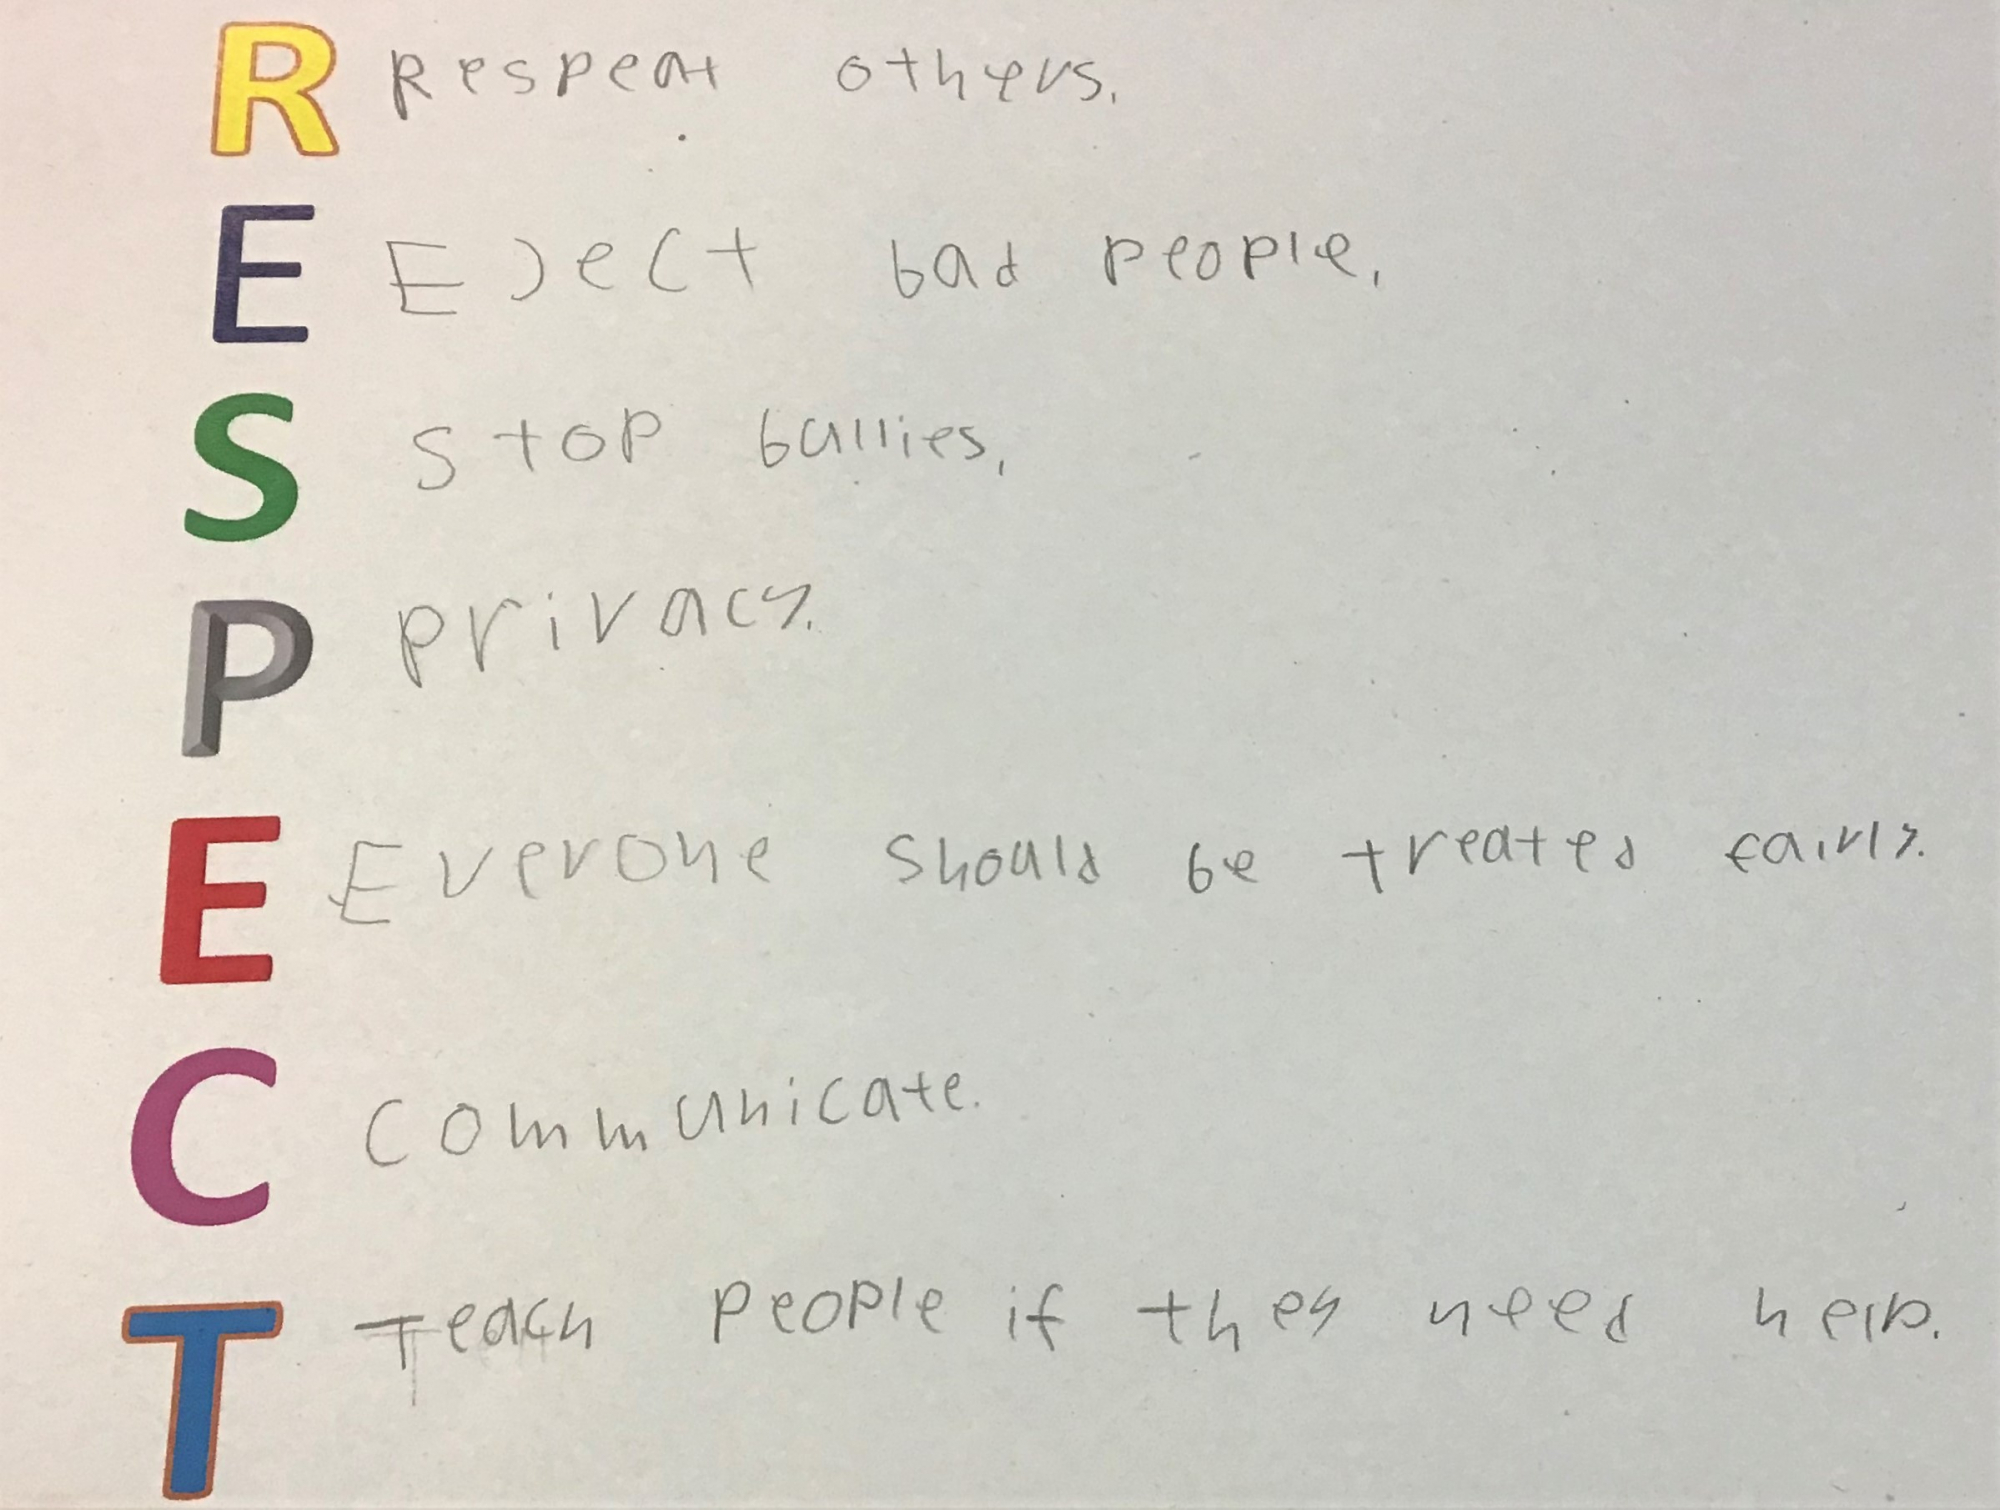 R Respeat others.
E Eject bad people.
S Stop bullies.
P privacy.
E Everone should be treated fairly.
C Communicate.
T Teach people if they need help.